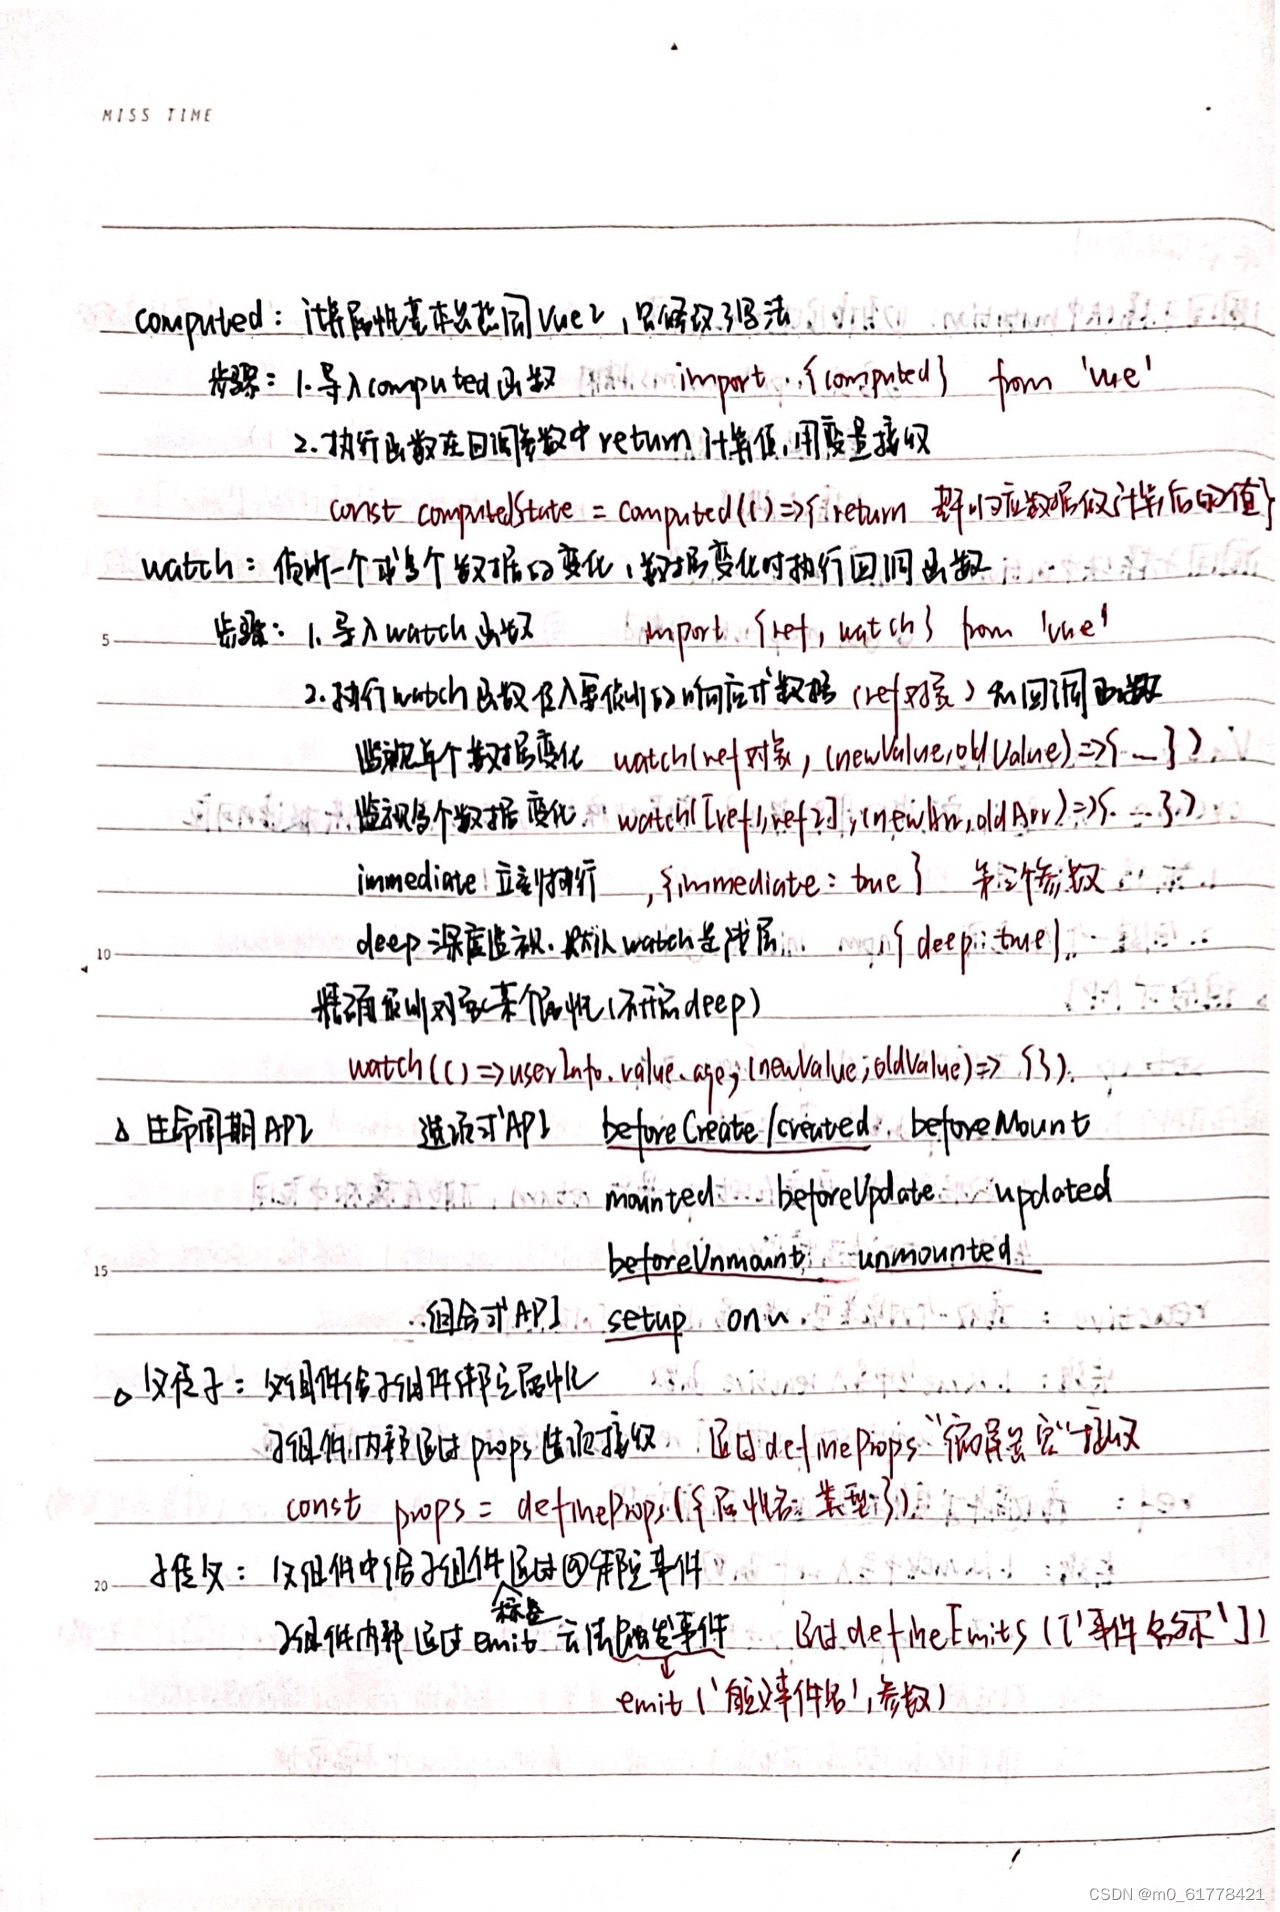 MISS TIME
computed: 计算属性基本思想同Vue2,只修改了写法
步骤: 1.导入computed函数 import {computed} from 'vue'
2.执行函数在回调参数中return计算值,用变量接收
const computedState = computed(()=>{return 基于响应数据做计算后的值}
watch: 侦听一个或多个数据的变化,数据变化时执行回调函数
5
步骤: 1.导入watch函数 import {ref, watch} from 'vue'
2.执行watch函数传入要侦听的响应式数据(ref对象)和回调函数
监视单个数据变化 watch(ref对象, (newValue,oldValue)=>{ … })
监视多个数据变化 watch([ref1,ref2], (newArr,oldArr)=>{ … })
immediate 立刻执行 ,{immediate: true} 第三个参数
10
deep 深度监视.默认watch是浅层 ,{deep: true}
精确侦听对象某个属性(不开启deep)
watch(()=>userInfo.value.age, (newValue,oldValue)=>{})
生命周期API 选项式API beforeCreate/created beforeMount
mounted beforeUpdate updated
15
beforeUnmount unmounted
组合式API setup on
父传子: 父组件给子组件绑定属性
子组件内部通过props选项接收 通过defineProps“编译器宏”接收
const props = defineProps({属性名: 类型})
20
子传父: 父组件中给子组件标签通过@绑定事件
子组件内部通过emit方法触发事件 通过defineEmits(['事件名称'])
emit('自定义事件名',参数)
CSDN @m0_61778421